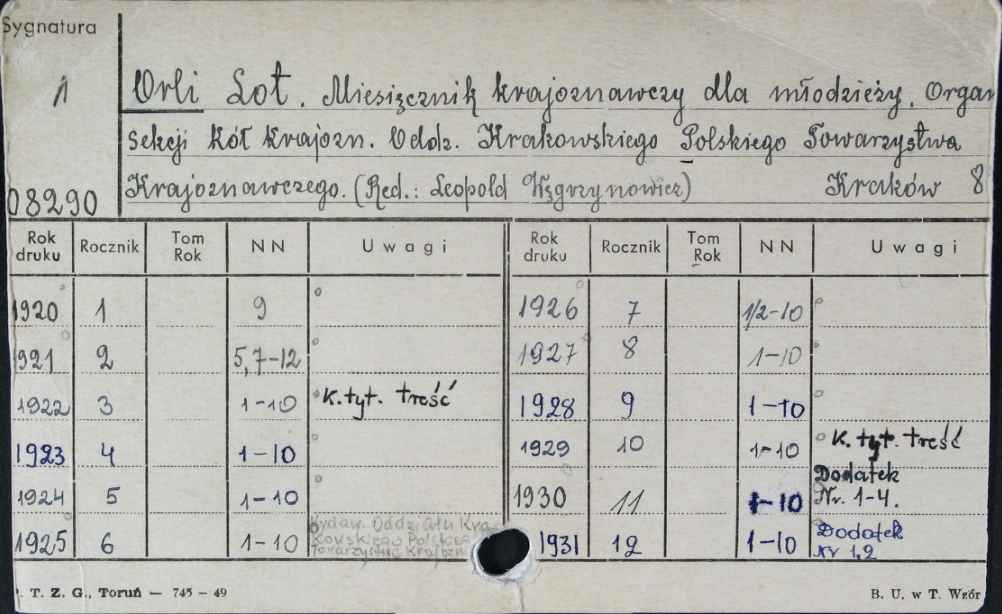 Sygnatura
1
08290
Orli Lot. Miesięcznik krajoznawczy dla młodzieży. Organ
sekcji kół krajozn. Oddz. Krakowskiego Polskiego Towarzystwa
Krajoznawczego. (Red.: Leopold Węgrzynowicz) Kraków 8
Rok druku Rocznik Tom Rok NN Uwagi Rok druku Rocznik Tom Rok NN Uwagi
1920 1 9 1926 7 1/2-10
1921 2 5,7-12 1927 8 1-10
1922 3 1-10 K.tyt. treść 1928 9 1-10
1923 4 1-10 1929 10 1-10 K. tyt. treść
1924 5 1-10 1930 11 1-10 Dodatek Nr. 1-4.
1925 6 1-10 Wydaw. Oddziału Kra-
kowskiego Polskiego
Towarzystwa Krajozn. 1931 12 1-10 Dodatek Nr 1,2
. T. Z. G., Toruń — 745 - 49 B. U. w T. Wzór